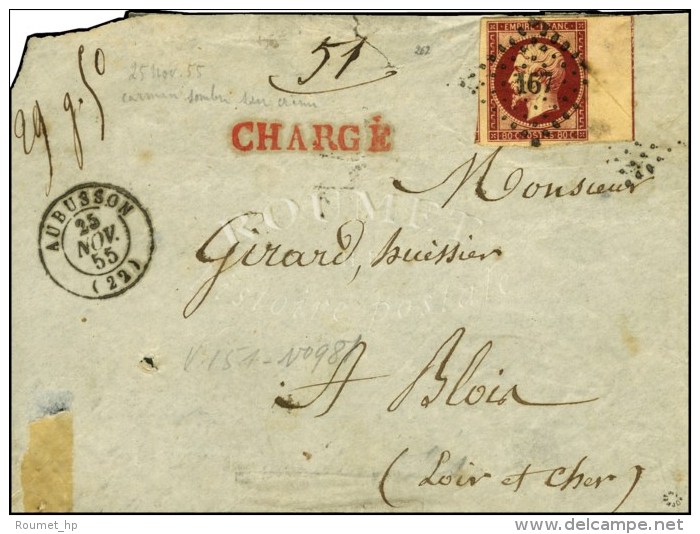 51
262
25 Nov. 55
carmin sombre sur crème
29 g. 50
CHARGÉ
EMPIRE FRANC
167
80 C POSTES 80 C
AUBUSSON
25
NOV.
55
(22)
ROUMET
Histoire postale
Monsieur
Girard, huissier
A Blois
(Loir et Cher)
V. 151 - N° 981
Roumet_hp
posted on delcampe.net